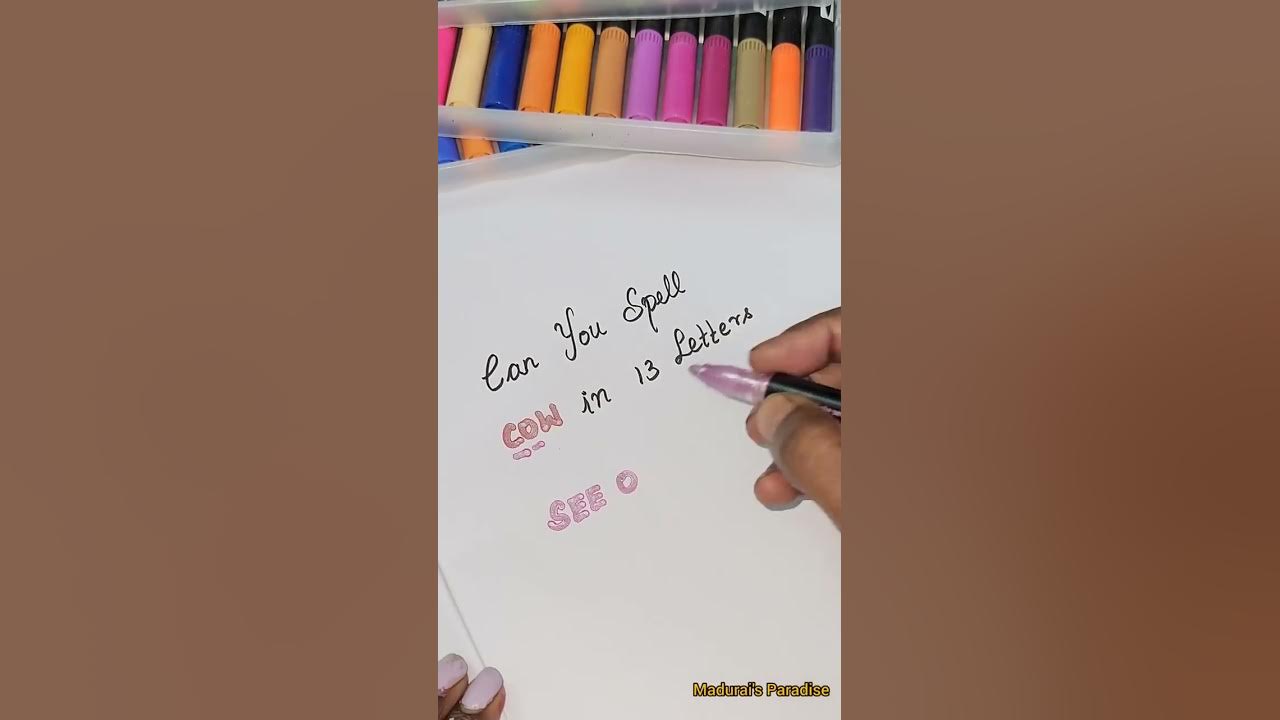 Can You Spell
COW in 13 Letters
SEE O
Madurai's Paradise